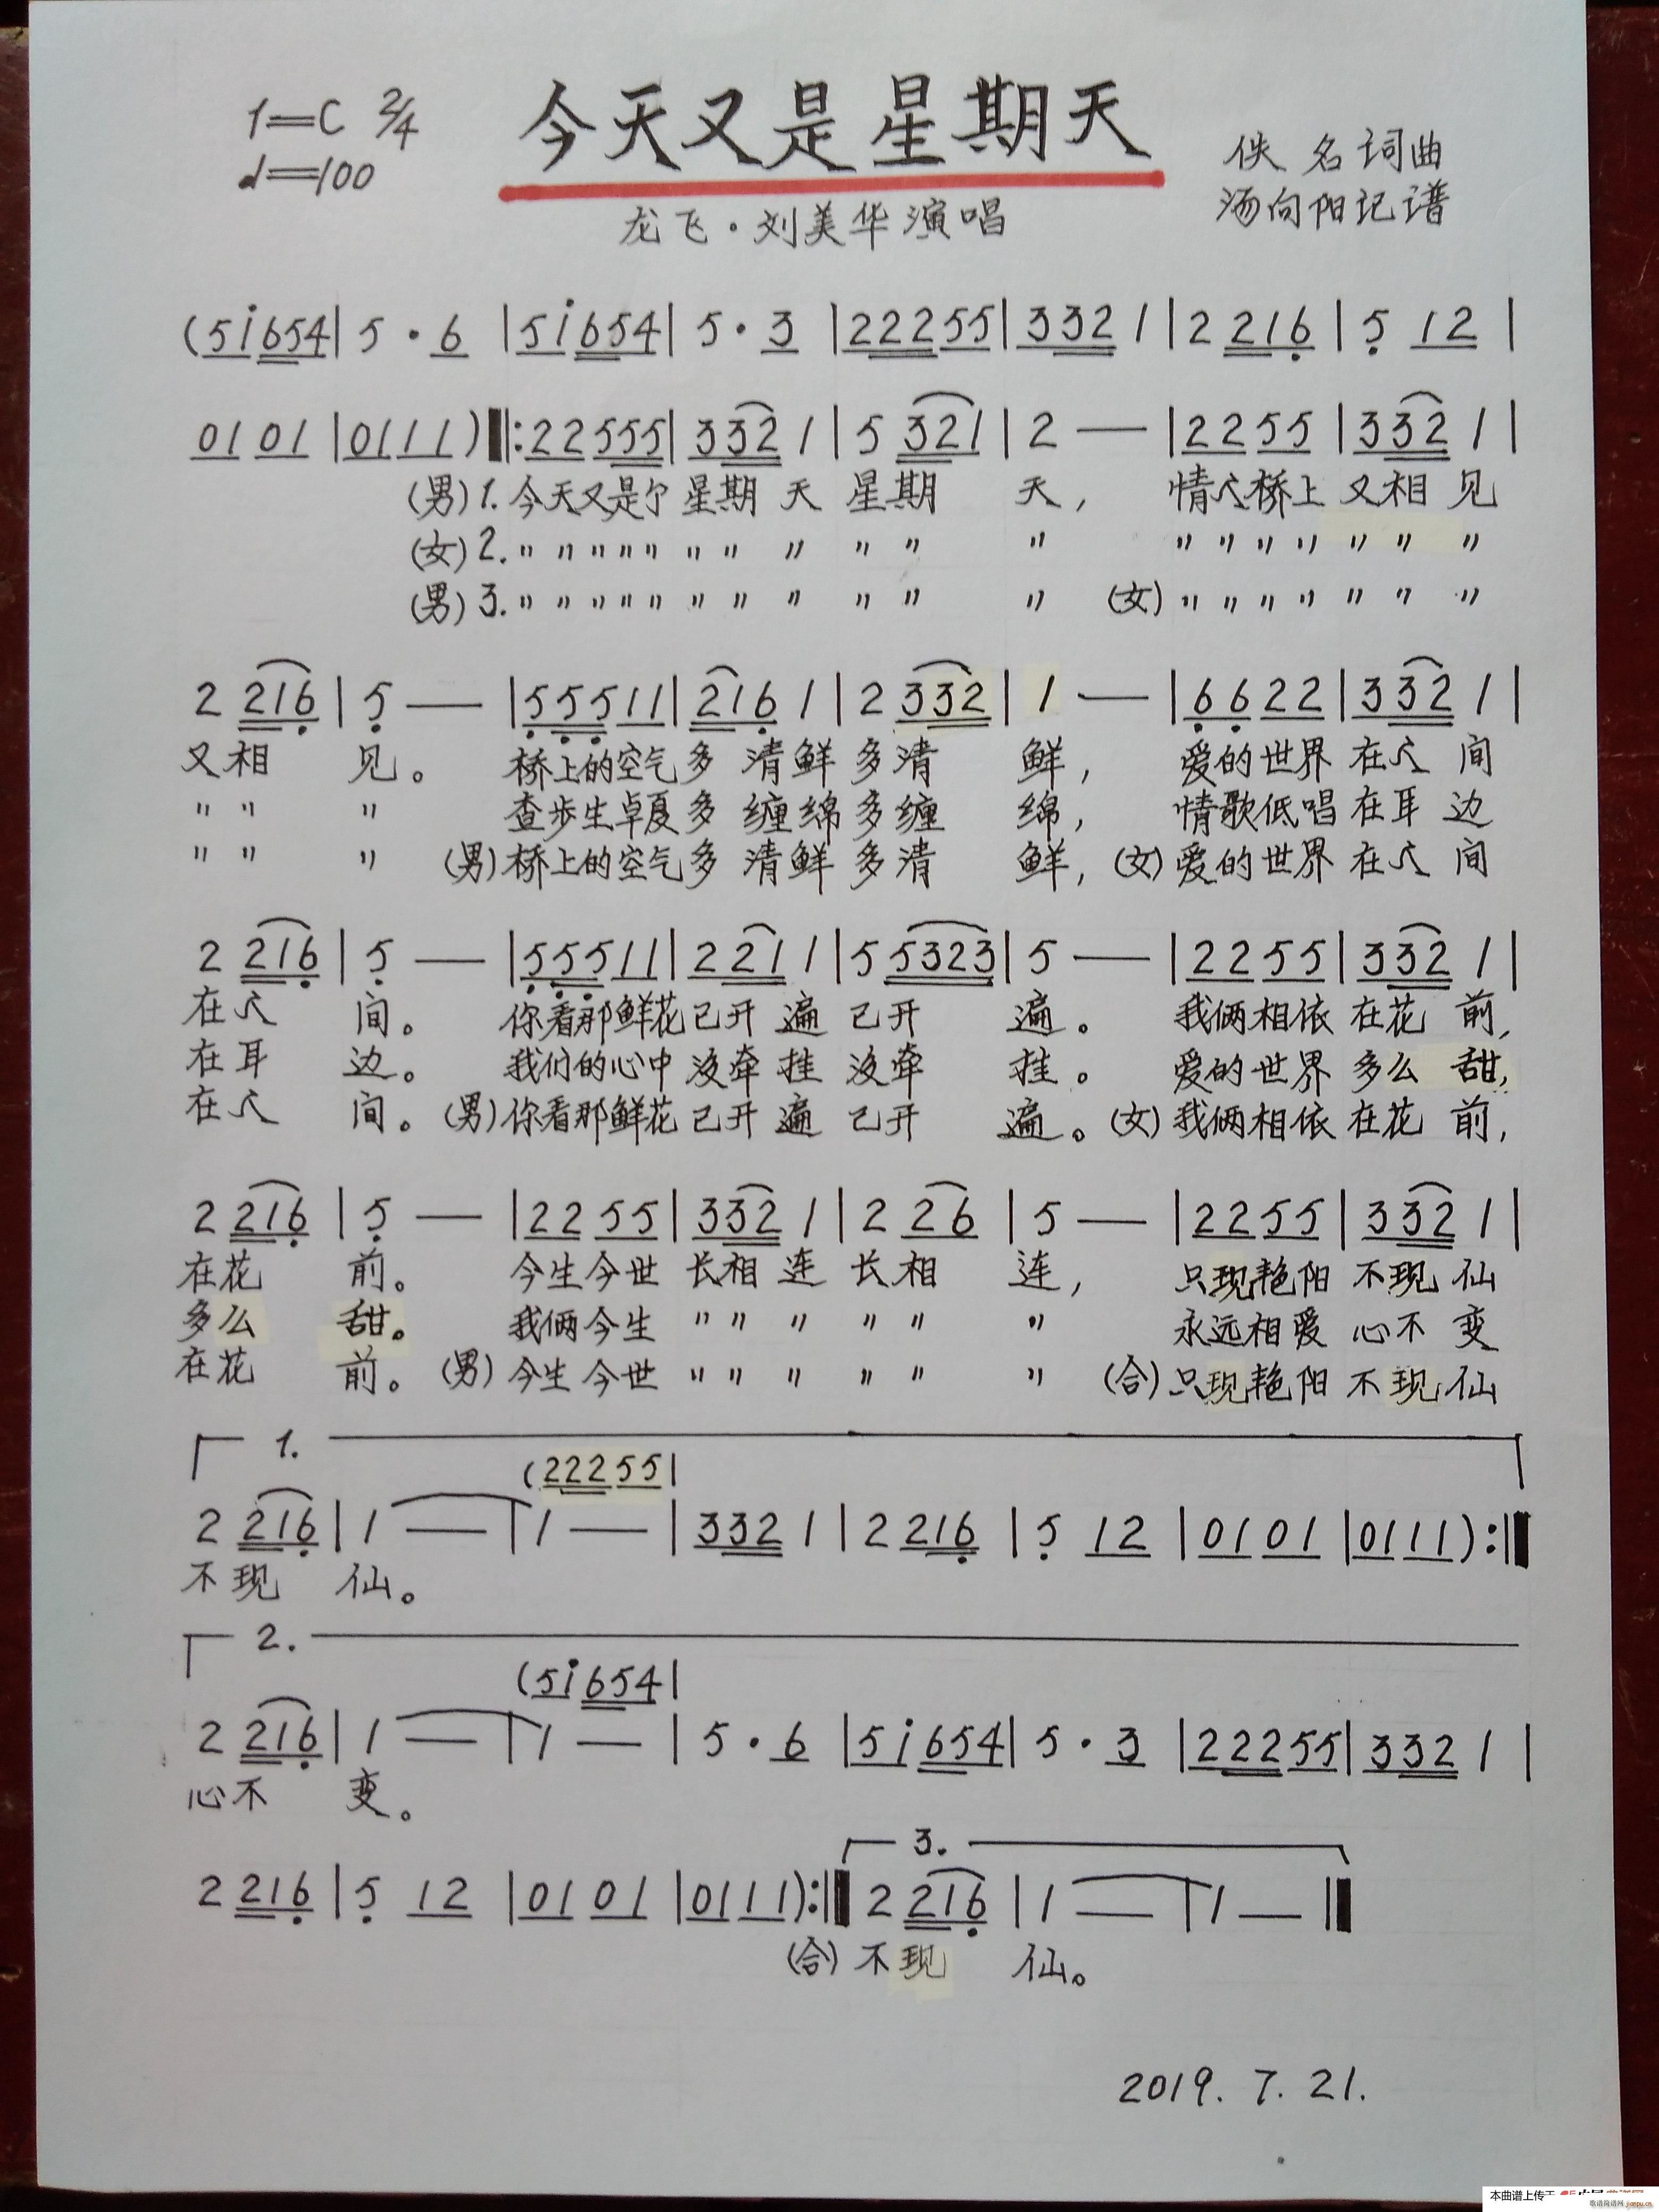 1=C 2/4
♩=100
今天又是星期天
佚名词曲
汤向阳记谱
龙飞·刘美华演唱
(5i654|5·6|5i654|5·3|22255|3321|2216|512|
0101|0111)‖:22555|3321|5321|2—|2255|3321|
(男)1.今天又是个星期天星期天,情人桥上又相见
(女)2.〃〃〃〃〃〃〃〃〃〃〃〃〃〃〃〃〃〃
(男)3.〃〃〃〃〃〃〃〃〃〃〃(女)〃〃〃〃〃〃〃
2216|5—|55511|2161|2332|1—|6622|3321|
又相见。桥上的空气多清鲜多清鲜,爱的世界在人间
〃〃〃查步生卓夏多缠绵多缠绵,情歌低唱在耳边
〃〃〃(男)桥上的空气多清鲜多清鲜,(女)爱的世界在人间
2216|5—|55511|2211|55323|5—|2255|3321|
在人间。你看那鲜花已开遍已开遍。我俩相依在花前,
在耳边。我们的心中没牵挂没牵挂。爱的世界多么甜,
在人间。(男)你看那鲜花已开遍已开遍。(女)我俩相依在花前,
2216|5—|2255|3321|226|5—|2255|3321|
在花前。今生今世长相连长相连,只现艳阳不现仙
多么甜。我俩今生〃〃〃〃〃〃永远相爱心不变
在花前。(男)今生今世〃〃〃〃〃〃(合)只现艳阳不现仙
1.
(22255|
2216|1—|1—|3321|2216|512|0101|0111):‖
不现仙。
2.
(5i654|
2216|1—|1—|5·6|5i654|5·3|22255|3321|
心不变。
3.
2216|512|0101|0111):‖2216|1—|1—‖
(合)不现仙。
2019.7.21.
本曲谱上传于
歌谱简谱网 jianpu.cn